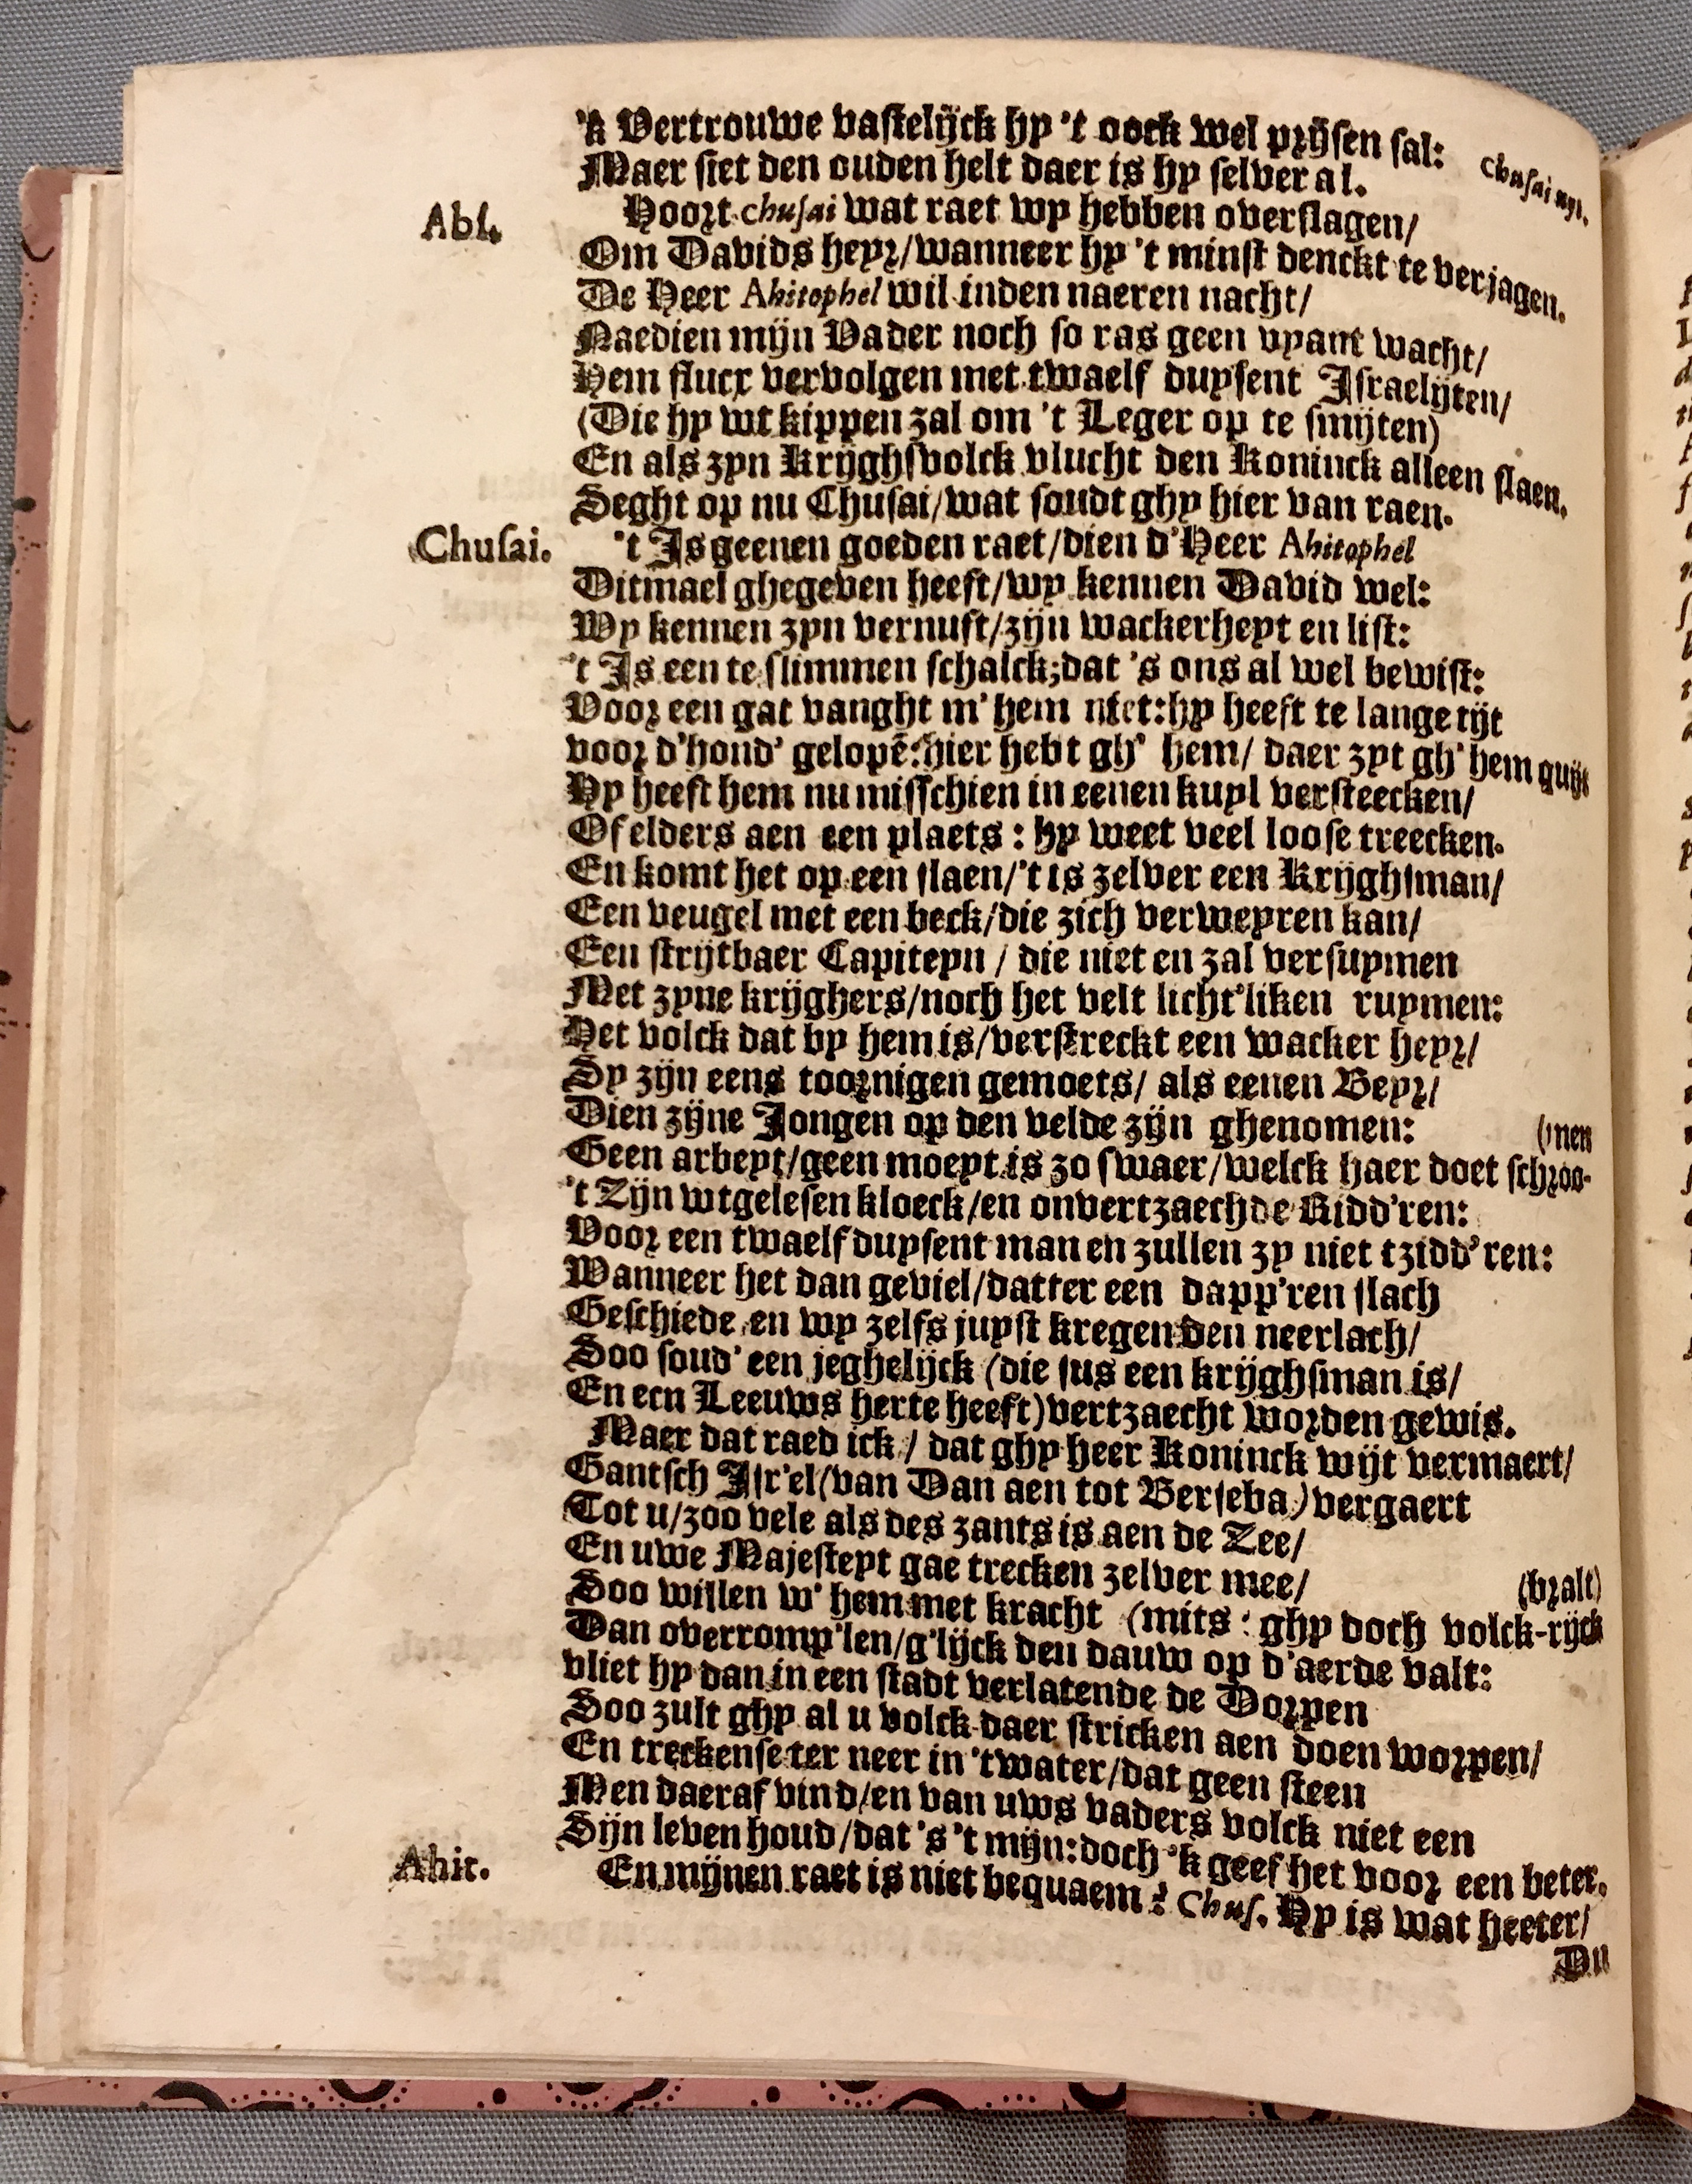 'k Vertrouwe vastelijck hy 't oock wel prijsen sal: Chusai uyt.
Maer siet den ouden helt daer is hy selver al.
Abs. Hoort Chusai wat raet wy hebben overslagen/
Om Davids heyr/wanneer hy 't minst denckt te verjagen.
De Heer Ahitophel wil inden naeren nacht/
Naedien mijn Vader noch so ras geen vyant wacht/
Hem flucx vervolgen met twaelf duysent Israelijten/
(Die hy wt kippen zal om 't Leger op te smijten)
En als zyn Krijghsvolck vlucht den Koninck alleen slaen.
Seght op nu Chusai/wat soudt ghy hier van raen.
Chusai. 't Is geenen goeden raet/dien d'Heer Ahitophel
Ditmael ghegeven heeft/wy kennen David wel:
Wy kennen zyn vernuft/zijn wackerheyt en list:
't Is een te slimmen schalck;dat 's ons al wel bewist:
Voor een gat vanght m' hem niet:hy heeft te lange tijt
voor d'hond' gelopē:hier hebt gh' hem/ daer zyt gh' hem quijt
Hy heeft hem nu misschien in eenen kuyl versteecken/
Of elders aen een plaets : hy weet veel loose treecken.
En komt het op een slaen/'t is zelver een Krijghsman/
Een veugel met een beck/die zich verweyren kan/
Een strijtbaer Capiteyn / die niet en zal versuymen
Met zyne krijghers/noch het velt licht'liken ruymen:
Het volck dat by hem is/verstreckt een wacker heyr/
Sy zijn eens toornigen gemoets/ als eenen Beyr/
Dien zijne Jongen op den velde zijn ghenomen: (men
Geen arbeyt/geen moeyt is zo swaer/welck haer doet schroo-
't Zijn wtgelesen kloeck/en onvertzaechde Ridd'ren:
Voor een twaelf duysent man en zullen zy niet tzidd'ren:
Wanneer het dan geviel/datter een dapp'ren slach
Geschiede en wy zelfs juyst kregen den neerlach/
Soo soud' een jeghelijck (die sus een krijghsman is/
En een Leeuws herte heeft)vertzaecht worden gewis.
Maer dat raed ick / dat ghy heer Koninck wijt vermaert/
Gantsch Isr'el(van Dan aen tot Berseba)vergaert
Tot u/zoo vele als des zants is aen de Zee/
En uwe Majesteyt gae trecken zelver mee/ (bralt)
Soo willen w' hem met kracht (mits : ghy doch volck-rijck
Dan overromp'len/g'lijck den dauw op d'aerde valt:
vliet hy dan in een stadt verlatende de Dorpen
Soo zult ghy al u volck daer stricken aen doen worpen/
En treckense ter neer in 't water/dat geen steen
Men daeraf vind/en van uws vaders volck niet een
Sijn leven houd/dat 's 't mijn:doch 'k geef het voor een beter.
Ahit. En mijnen raet is niet bequaem ? Chus. Hy is wat heeter/
Du